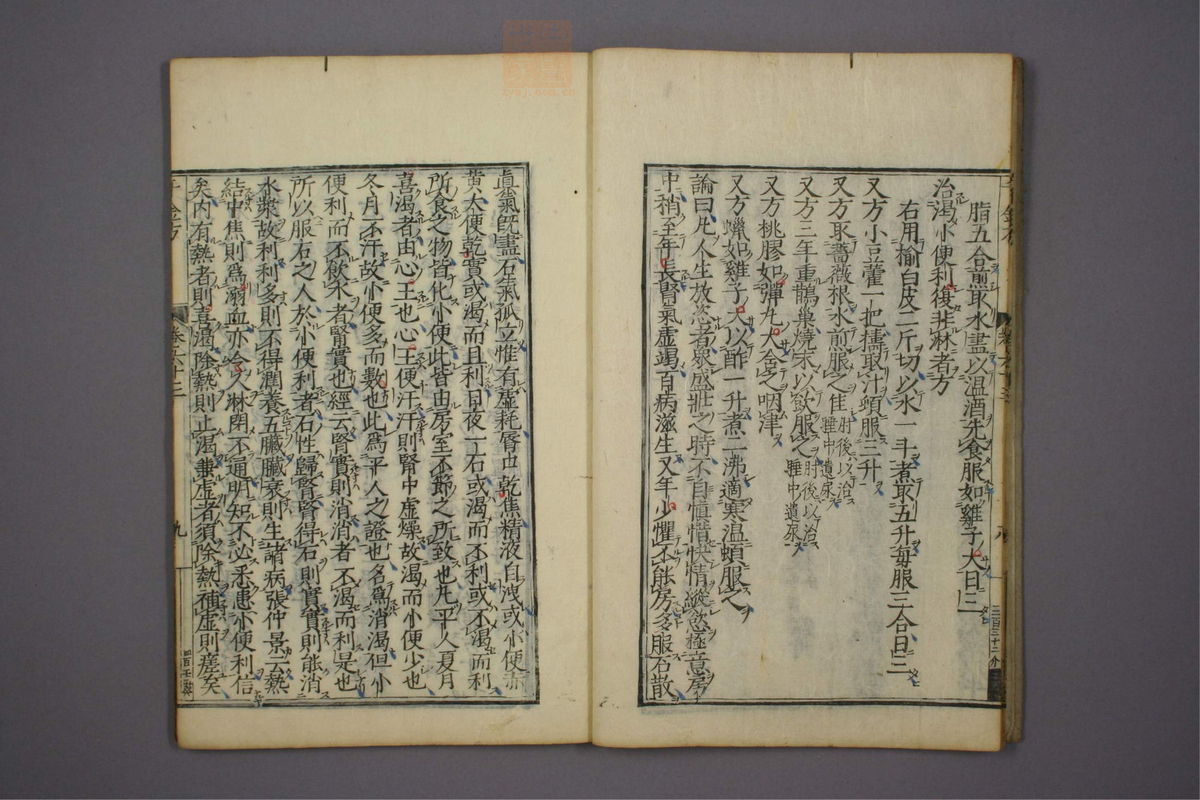 脂五合煎取水盡以温酒先食服如雞子大日三
治渴小便利復非淋者方
右用榆白皮二斤切以水一斗煮取五升每服三合日三
又方小豆藿一把擣取汁頓服三升
又方取薔薇根水煎服之佳肘後以治睡中遺尿
又方三年重鵲巢燒末以飲服之肘後以治睡中遺尿
又方桃膠如彈丸大含之咽津
又方蠟如雞子大以酢一升煮二沸適寒温頓服之
論曰凡人生放恣者衆盛壯之時不自慎惜快情縱慾極意房
中稍至年長腎氣虛竭百病滋生又年少懼不能房多服石散
真氣既盡石氣孤立惟有虛耗脣口乾焦精液自洩或小便赤
黄大便乾實或渴而且利日夜一石或渴而不利或不渴而利
所食之物皆化小便此皆由房室不節之所致也凡平人夏月
喜渴者由心王也心王便汗汗則腎中虛燥故渴而小便少也
冬月不汗故小便多而數也此為平人之證也名為消渴但小
便利而不飲水者腎實也經云腎實則消消者不渴而利是也
所以服石之人於小便利者石性歸腎腎得石則實實則能消
水漿故利利多則不得潤養五臟臟衰則生諸病張仲景云熱
結中焦則為溺血亦令人淋閉不通明知不必悉患小便利信
矣内有熱者則喜渴除熱則止渴兼虛者須除熱補虛則瘥矣
千金方
卷六十三
九